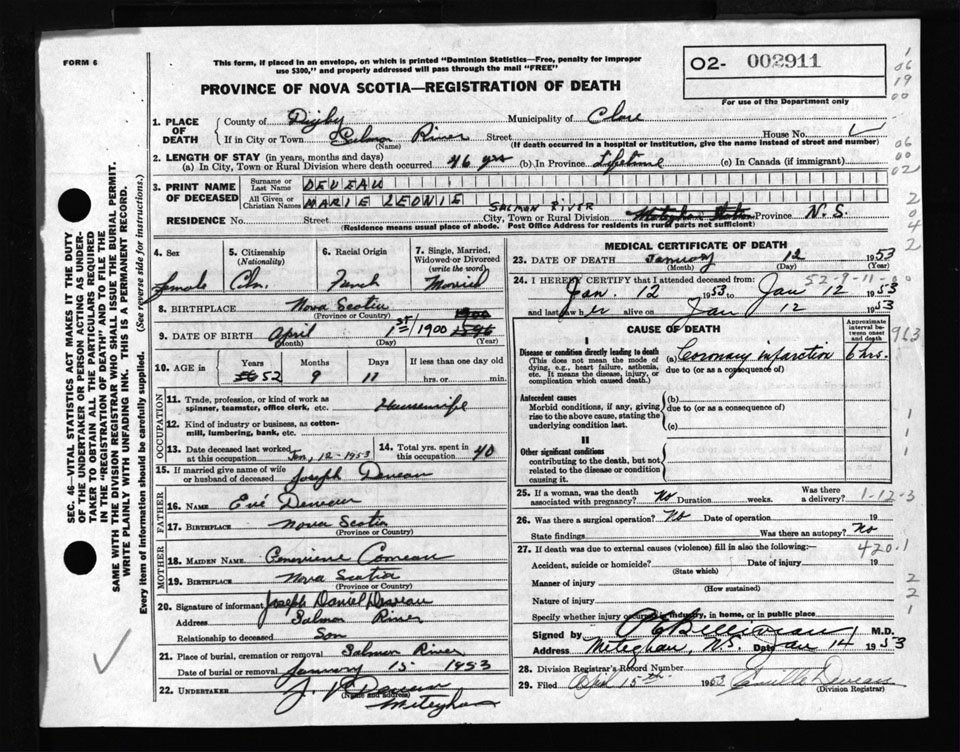 FORM 6
This form, if placed in an envelope, on which is printed "Dominion Statistics—Free, penalty for improper
use $300," and properly addressed will pass through the mail "FREE"
O2- 002911
For use of the Department only
PROVINCE OF NOVA SCOTIA—REGISTRATION OF DEATH
1. PLACE OF DEATH
County of Digby Municipality of Clare
If in City or Town Salmon River Street House No.
(Name) (If death occurred in a hospital or institution, give the name instead of street and number)
2. LENGTH OF STAY (in years, months and days)
(a) In City, Town or Rural Division where death occurred 46 yrs (b) In Province Lifetime (c) In Canada (if immigrant)
3. PRINT NAME OF DECEASED
Surname or Last Name DEVEAU
All Given or Christian Names MARIE LEONIE
SALMON RIVER
RESIDENCE No. Street City, Town or Rural Division Meteghan Station Province N.S.
(Residence means usual place of abode. Post Office Address for residents in rural parts not sufficient)
4. Sex
female
5. Citizenship
(Nationality)
Cdn.
6. Racial Origin
French
7. Single, Married, Widowed or Divorced
(write the word)
Married
8. BIRTHPLACE Nova Scotia
(Province or Country)
1900
9. DATE OF BIRTH April 1st/1900
(Month) (Day) (Year)
10. AGE in
Years Months Days If less than one day old
56 52 9 11 hrs. or min.
OCCUPATION
11. Trade, profession, or kind of work as
spinner, teamster, office clerk, etc. Housewife
12. Kind of industry or business, as cotton-
mill, lumbering, bank, etc.
13. Date deceased last worked
at this occupation Jan, 12-1953
14. Total yrs. spent
in this occupation 40
15. If married give name of wife
or husband of deceased Joseph Deveau
FATHER
16. NAME Deveau
17. BIRTHPLACE Nova Scotia
(Province or Country)
MOTHER
18. MAIDEN NAME Comeau
19. BIRTHPLACE Nova Scotia
(Province or Country)
20. Signature of informant Joseph Daniel Deveau
Address Salmon River
Relationship to deceased Son
21. Place of burial, cremation or removal Salmon River
Date of burial or removal January 15 1953
22. UNDERTAKER Deveau
(Name and address)
Meteghan
MEDICAL CERTIFICATE OF DEATH
23. DATE OF DEATH January 12 1953
(Month) (Day) (Year)
24. I HEREBY CERTIFY that I attended deceased from:
52-9-11
Jan. 12 1953 to Jan 12 1953
and last saw her alive on Jan 12 1953
CAUSE OF DEATH
Approximate interval between onset and death
I
Disease or condition directly leading to death
(This does not mean the mode of
dying, e.g., heart failure, asthenia,
etc. It means the disease, injury, or
complication which caused death.)
(a) Coronary infarction 6 hrs.
due to (or as a consequence of)
Antecedent causes
Morbid conditions, if any, giving
rise to the above cause, stating the
underlying condition last.
(b)
due to (or as a consequence of)
(c)
II
Other significant conditions
contributing to the death, but not
related to the disease or condition
causing it.
25. If a woman, was the death
associated with pregnancy? No Duration weeks. Was there a delivery? 1-12-3
26. Was there a surgical operation? No Date of operation 19
State findings Was there an autopsy? No
27. If death was due to external causes (violence) fill in also the following:— 420.1
Accident, suicide or homicide? Date of injury 19
(State which)
Manner of injury
(How sustained)
Nature of injury
Specify whether injury occurred in industry, in home, or in public place
Signed by M.D.
Address Meteghan, N.S. Date Jan 14 1953
28. Division Registrar's Record Number
29. Filed 15th 1953 Camille Deveau
(Division Registrar)
SEC. 46—VITAL STATISTICS ACT MAKES IT THE DUTY
OF THE UNDERTAKER OR PERSON ACTING AS UNDER-
TAKER TO OBTAIN ALL THE PARTICULARS REQUIRED
IN THE "REGISTRATION OF DEATH" AND TO FILE THE
SAME WITH THE DIVISION REGISTRAR WHO SHALL ISSUE THE BURIAL PERMIT.
WRITE PLAINLY WITH UNFADING INK. THIS IS A PERMANENT RECORD.
Every item of information should be carefully supplied. (See reverse side for instructions.)
1
06
19
00
06
00
02
2
0
4
2
963
1
1
1
2
2
1